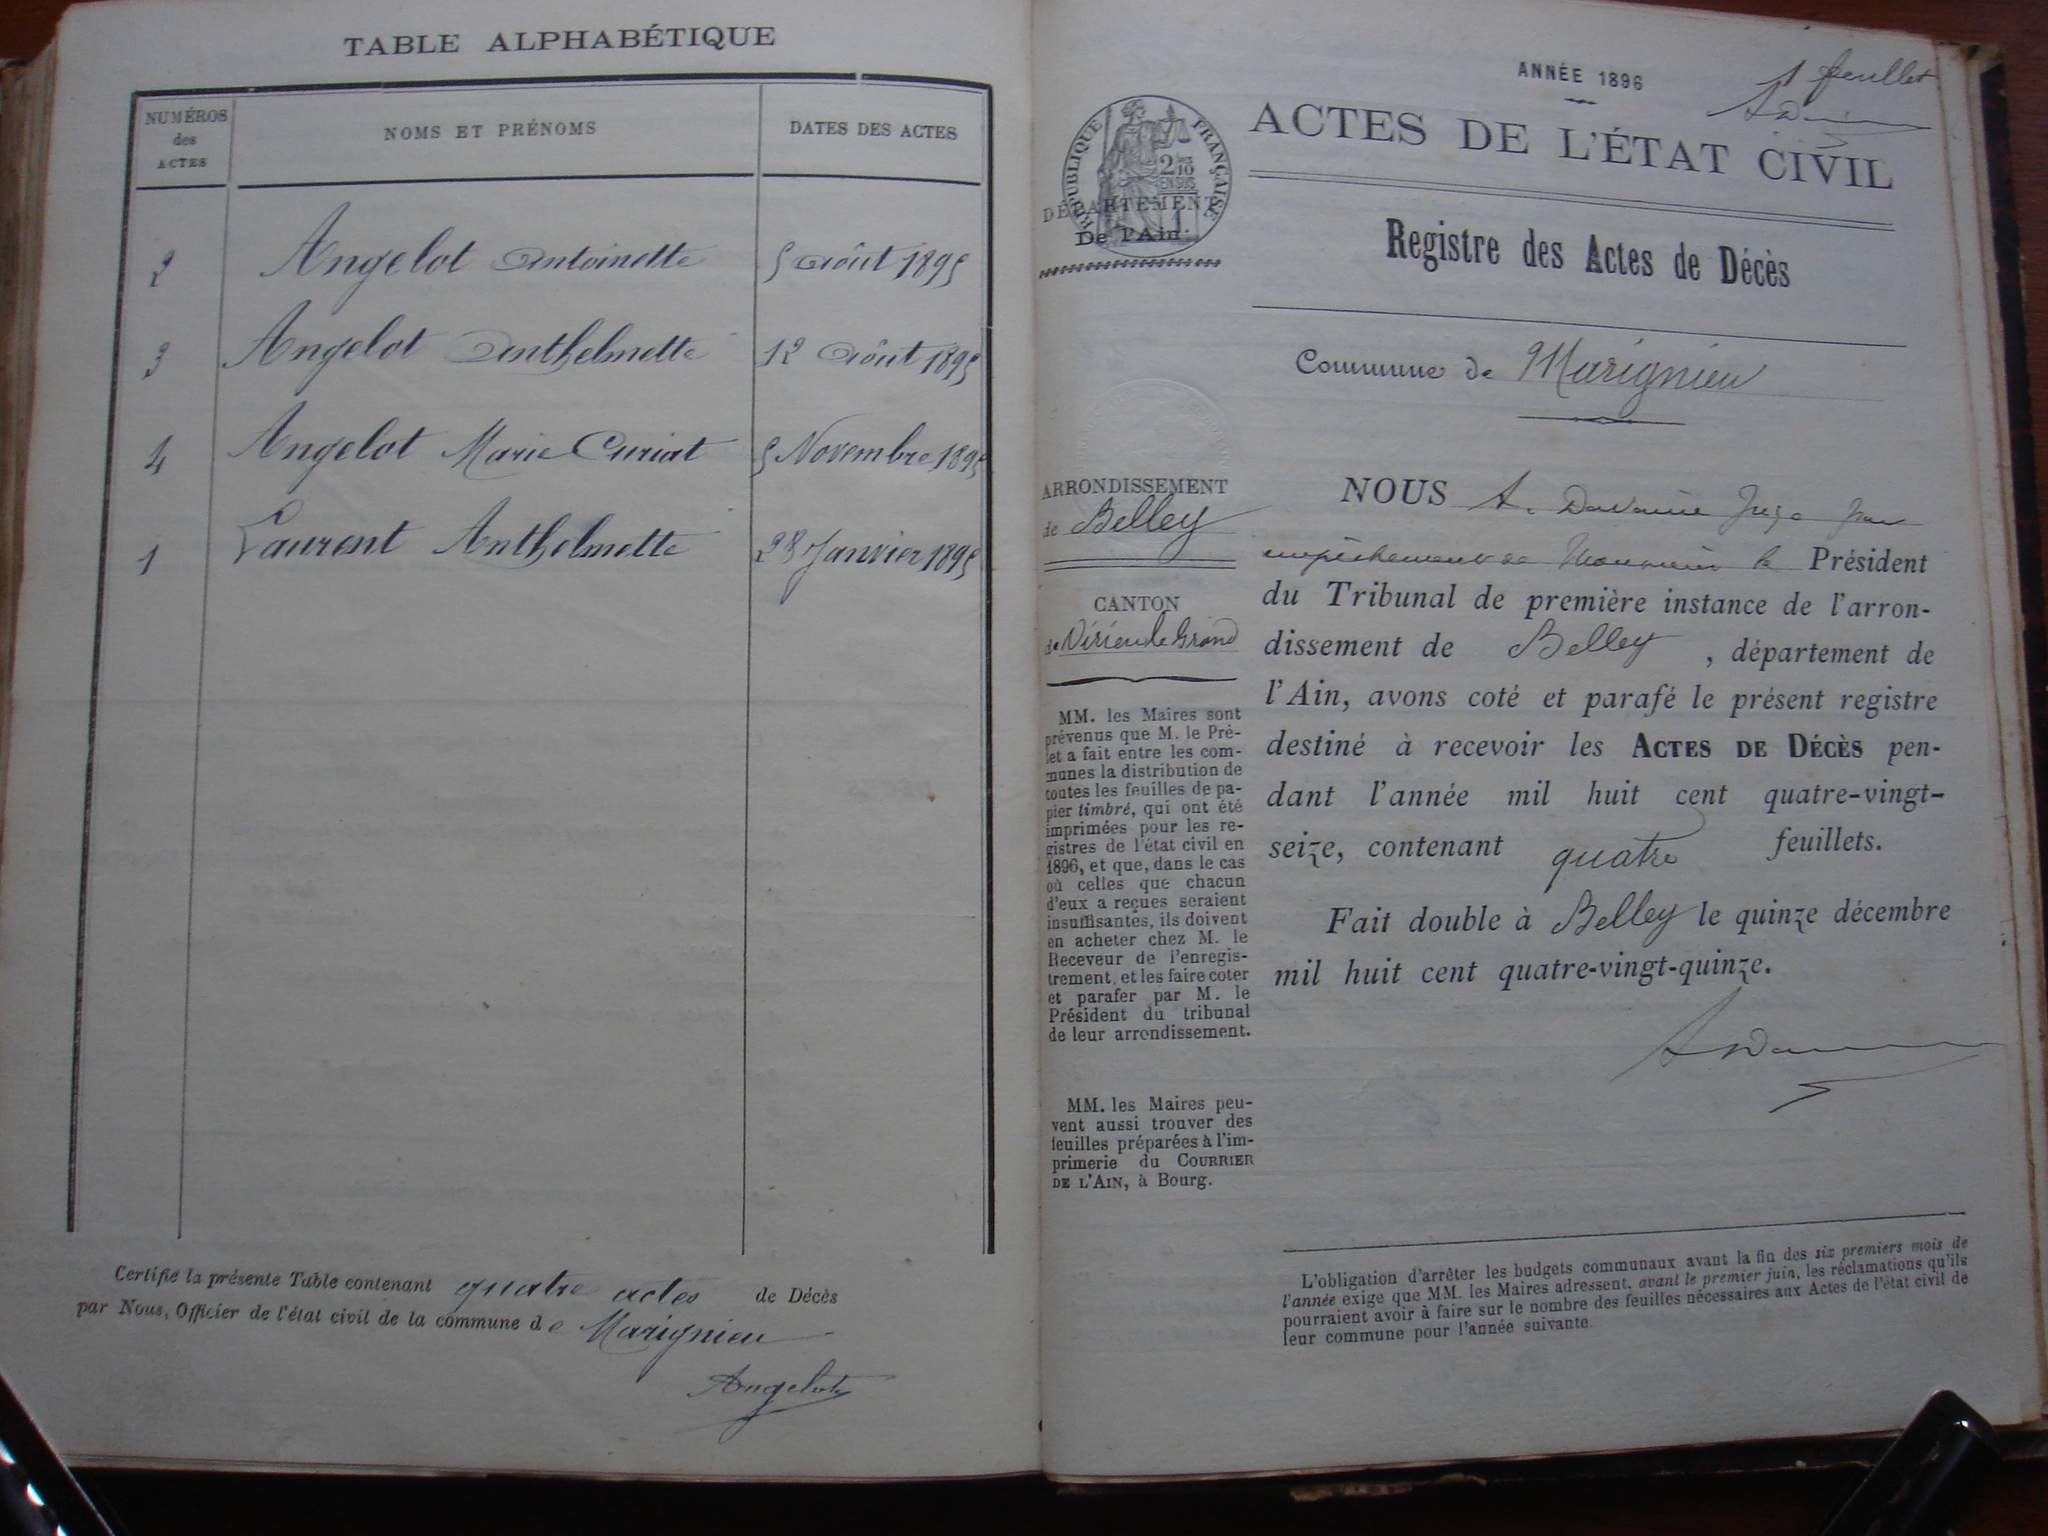 TABLE ALPHABÉTIQUE
NUMÉROS des ACTES
NOMS ET PRÉNOMS
DATES DES ACTES
2 Angelot Antoinette 5 Août 1895
3 Angelot Anthelmette 12 Août 1895
4 Angelot Marie Curiat 5 Novembre 1895
1 Laurent Anthelmette 28 Janvier 1895
Certifie la présente Table contenant quatre actes de Décès
par Nous, Officier de l'état civil de la commune de Marignieu
Angelot
1 feuillet
ANNÉE 1896
ACTES DE L'ÉTAT CIVIL
RÉPUBLIQUE FRANÇAISE
2 10
EN SUS
DÉPARTEMENT
De l'Ain.
Registre des Actes de Décès
Commune de Marignieu
ARRONDISSEMENT
de Belley
CANTON
de Virieu le Grand
MM. les Maires sont
prévenus que M. le Pré-
fet a fait entre les com-
munes la distribution de
toutes les feuilles de pa-
pier timbré, qui ont été
imprimées pour les re-
gistres de l'état civil en
1896, et que, dans le cas
où celles que chacun
d'eux a reçues seraient
insuffisantes, ils doivent
en acheter chez M. le
Receveur de l'enregis-
trement, et les faire coter
et parafer par M. le
Président du tribunal
de leur arrondissement.
MM. les Maires peu-
vent aussi trouver des
feuilles préparées à l'im-
primerie du COURRIER
DE L'AIN, à Bourg.
NOUS A. Juge pour
empêchement de Monsieur le Président
du Tribunal de première instance de l'arron-
dissement de Belley, département de
l'Ain, avons coté et parafé le présent registre
destiné à recevoir les ACTES DE DÉCÈS pen-
dant l'année mil huit cent quatre-vingt-
seize, contenant quatre feuillets.
Fait double à Belley le quinze décembre
mil huit cent quatre-vingt-quinze.
L'obligation d'arrêter les budgets communaux avant la fin des six premiers mois de
l'année exige que MM. les Maires adressent, avant le premier juin, les réclamations qu'ils
pourraient avoir à faire sur le nombre des feuilles nécessaires aux Actes de l'état civil de
leur commune pour l'année suivante.